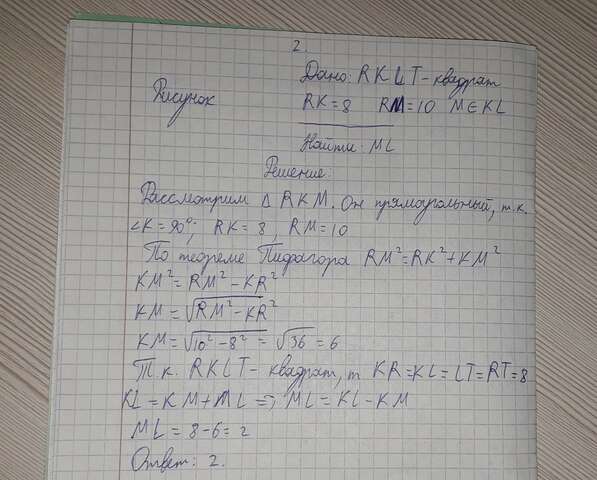 2.
Дано: RKLT - квадрат
Рисунок
RK=8 RM=10 M∈KL
Найти: ML
Решение:
Рассмотрим Δ RKM. Он прямоугольный, т.к.
∠K=90°; RK=8, RM=10
По теореме Пифагора RM²=RK²+KM²
KM²=RM²-KR²
KM=√RM²-KR²
KM=√10²-8² = √36 = 6
Т.к. RKLT- квадрат, т KR=KL=LT=RT=8
KL=KM+ML => ML=KL-KM
ML = 8-6= 2
Ответ: 2.